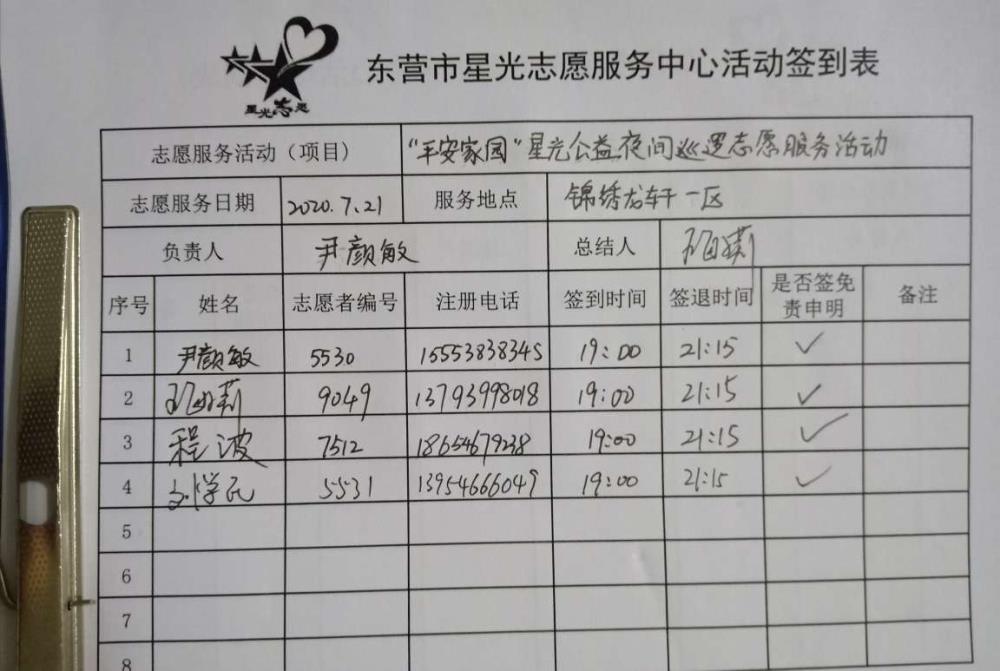 星光志愿
东营市星光志愿服务中心活动签到表
志愿服务活动（项目） “平安家园”星光公益夜间巡逻志愿服务活动
志愿服务日期 2020.7.21 服务地点 锦绣龙轩一区
负责人 尹颜敏 总结人
序号 姓名 志愿者编号 注册电话 签到时间 签退时间 是否签免责申明 备注
1 尹颜敏 5530 15553838345 19:00 21:15 ✓
2 9049 13793998018 19:00 21:15 ✓
3 程波 7512 18654679238 19:00 21:15 ✓
4 刘学民 5531 13954666049 19:00 21:15 ✓
5
6
7
8